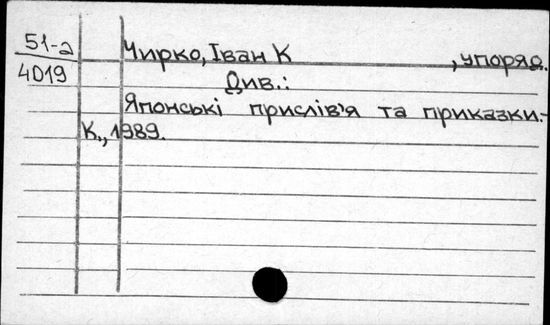 51-а
4019
Чирко, Іван К , упоряд.
Див.:
Японські прислів'я та приказки.-
К., 1989.